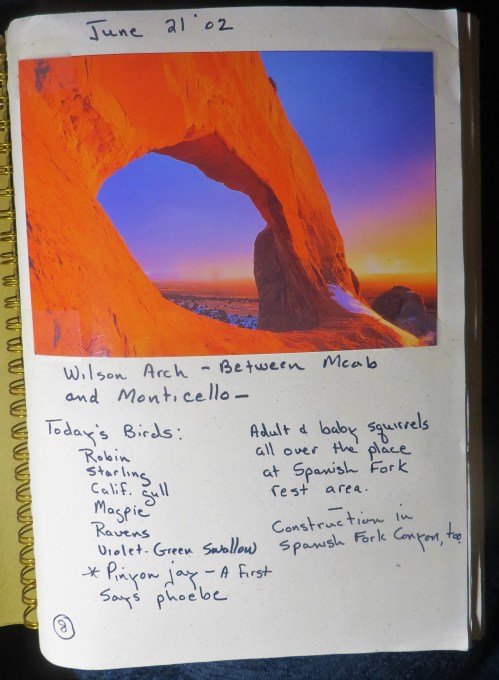 June 21 '02
Wilson Arch - Between Moab
and Monticello -
Today's Birds:
Robin
Starling
Calif. gull
Magpie
Ravens
Violet-Green Swallow
* Pinyon jay - A first
Says phoebe
Adult & baby squirrels
all over the place
at Spanish Fork
rest area.
Construction in
Spanish Fork Canyon, too
8